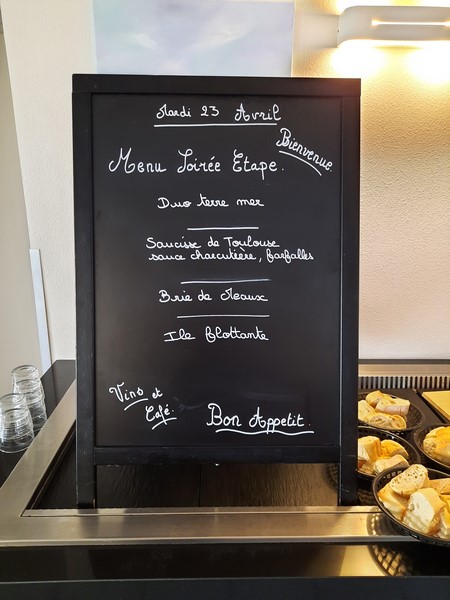 Mardi 23 Avril
Bienvenue.
Menu Soirée Etape.
Duo terre mer
Saucisse de Toulouse
sauce charcutière, farfalles
Brie de Meaux
Ile flottante
Vins et
Café.
Bon Appetit.